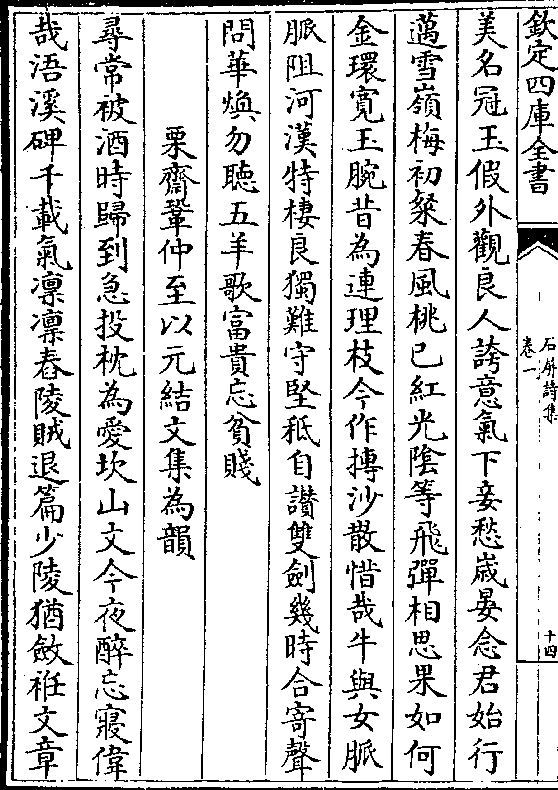 欽定四庫全書
石屏詩集
卷一
十四
美名冠玉假外觀良人誇意氣下妾愁嵗晏念君始行
邁雪嶺梅初粲春風桃已紅光陰等飛彈相思果如何
金環寛玉腕昔為連理枝今作摶沙散惜哉牛與女脈
脈阻河漢特棲良獨難守堅秪自讚雙劍幾時合寄聲
問華煥勿聽五羊歌富貴忘貧賤
栗齋鞏仲至以元結文集為韻
尋常被酒時歸到急投枕為愛坎山文今夜醉忘寢偉
哉浯溪碑千載氣凛凛舂陵賊退篇少陵猶斂袵文章